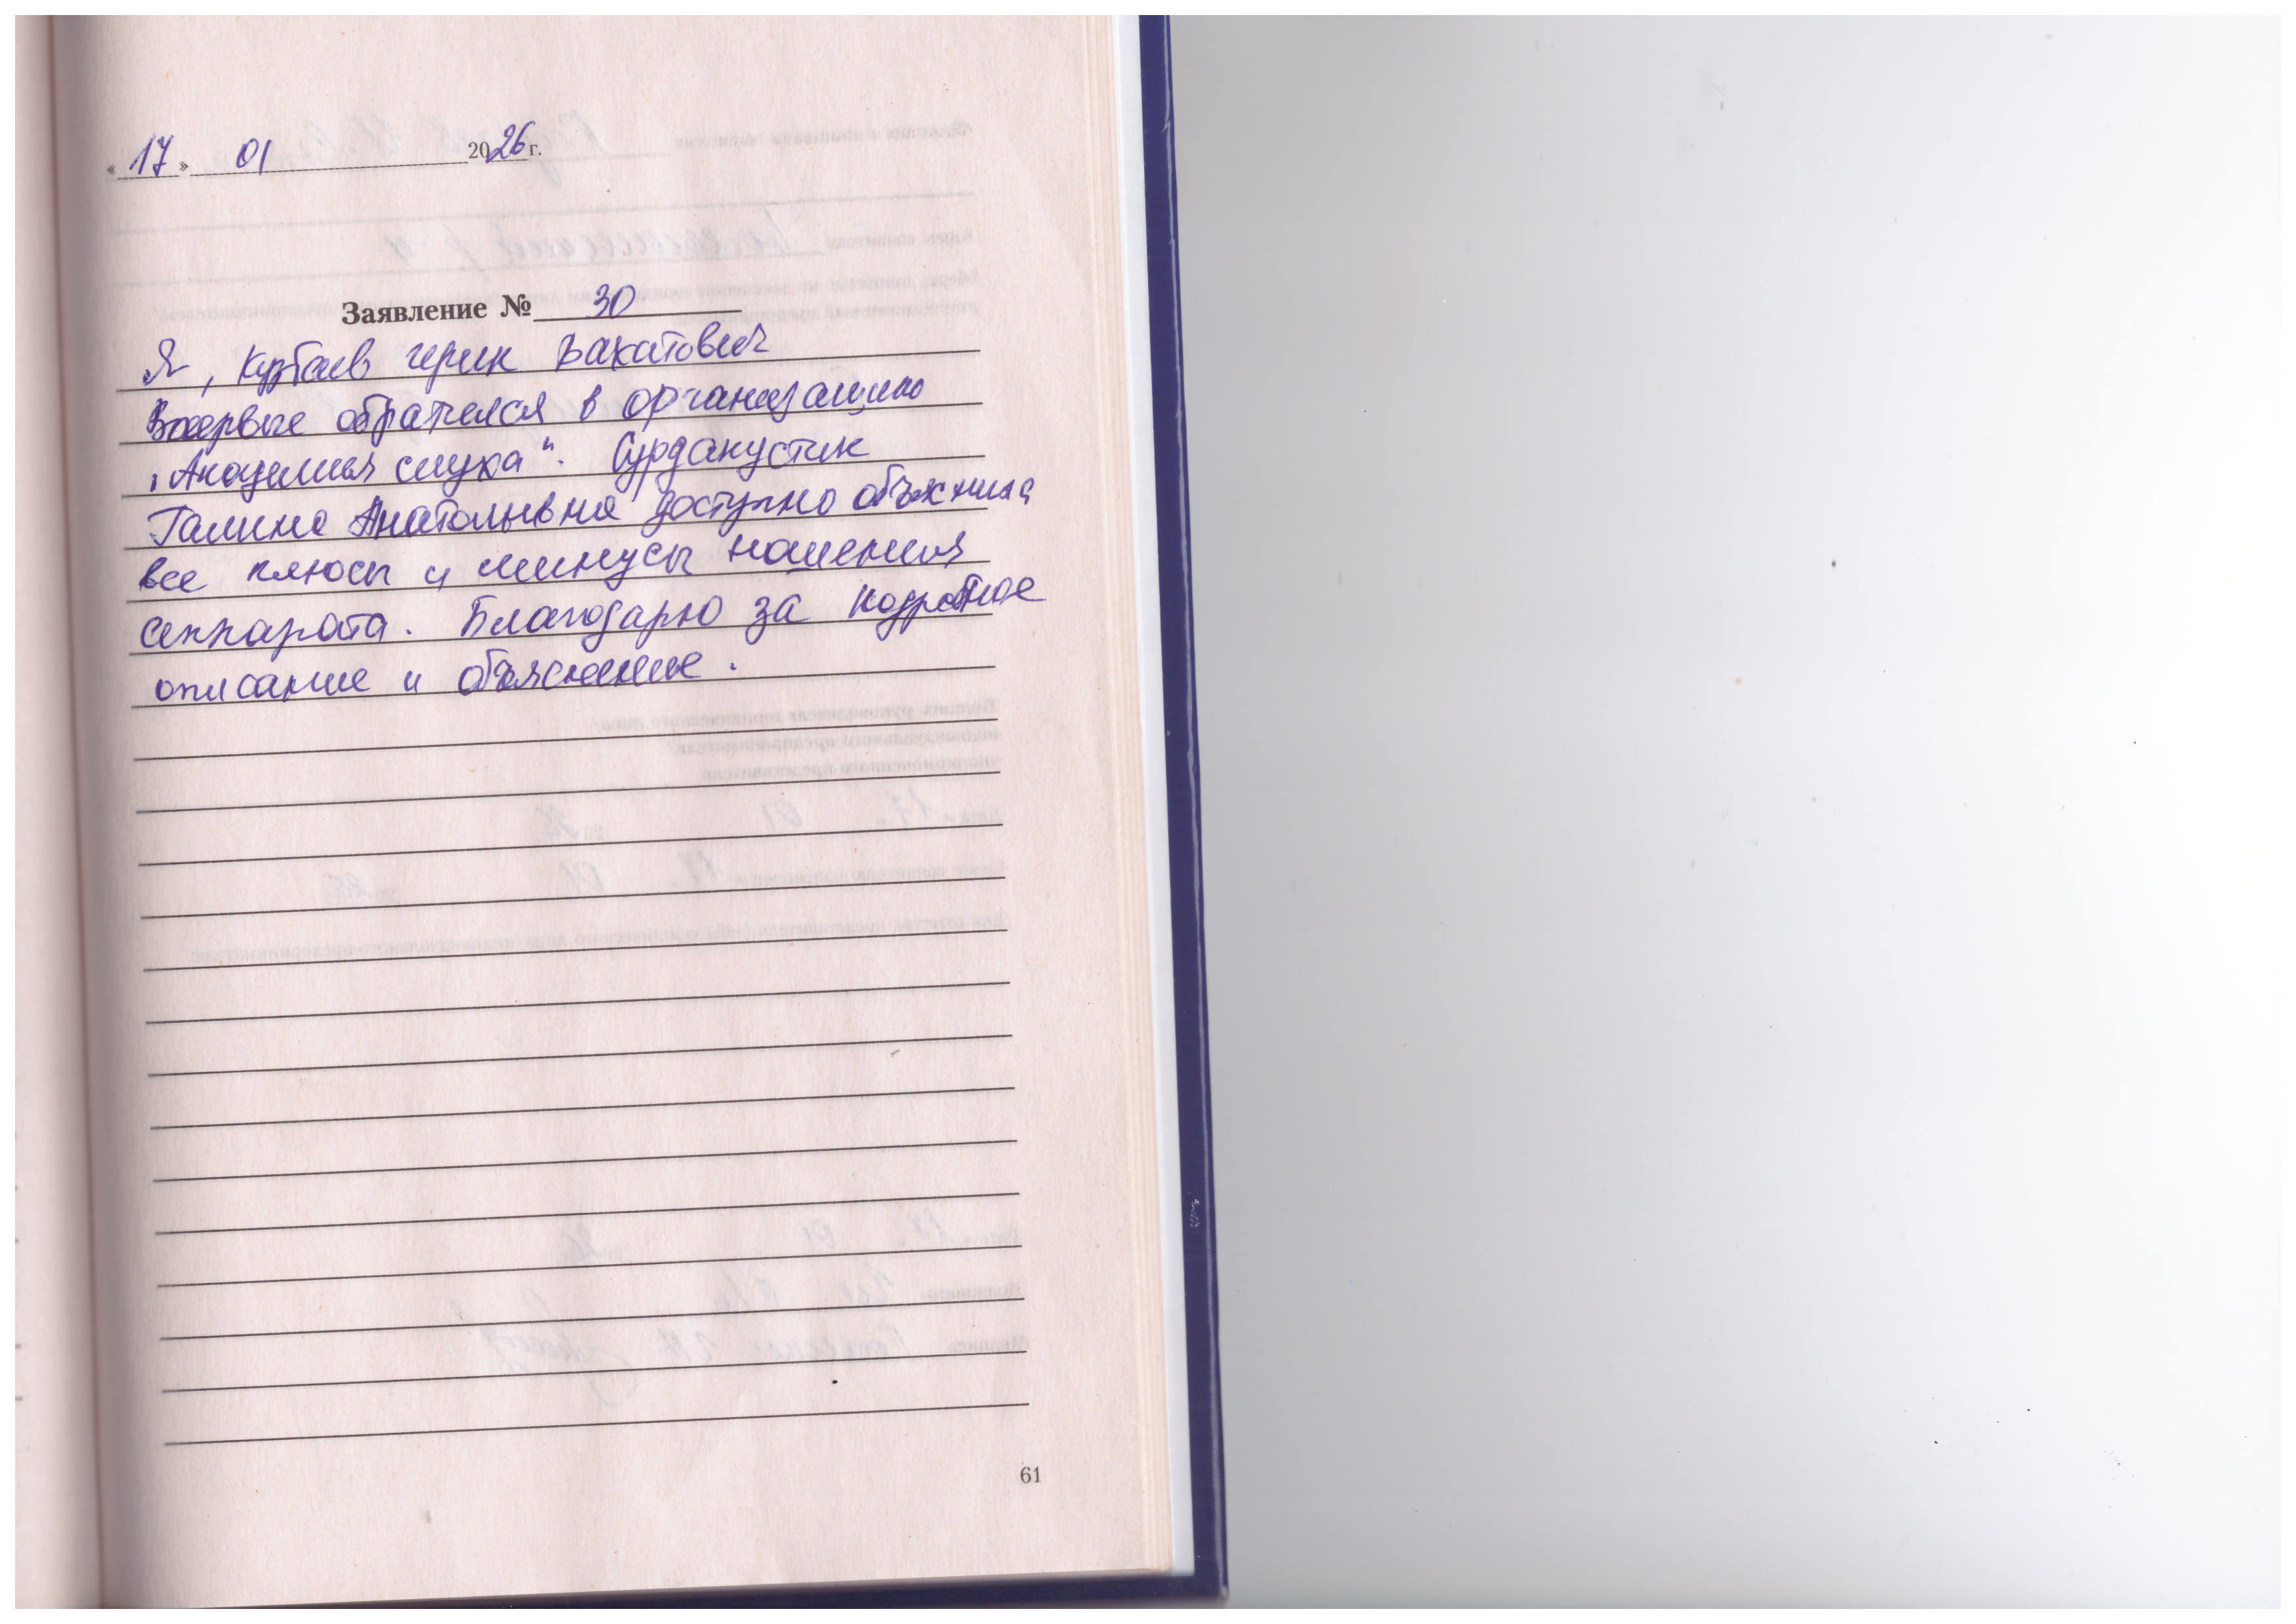 « 17 » 01 2026 г.
Заявление № 30
Я, Курбаев Герик Вахатович
Впервые обратился в организацию
"Академия слуха". Сурдакустик
Галина Анатольевна доступно объяснила
все плюсы и минусы ношения
аппарата. Благодарю за подробное
описание и объяснение.
61